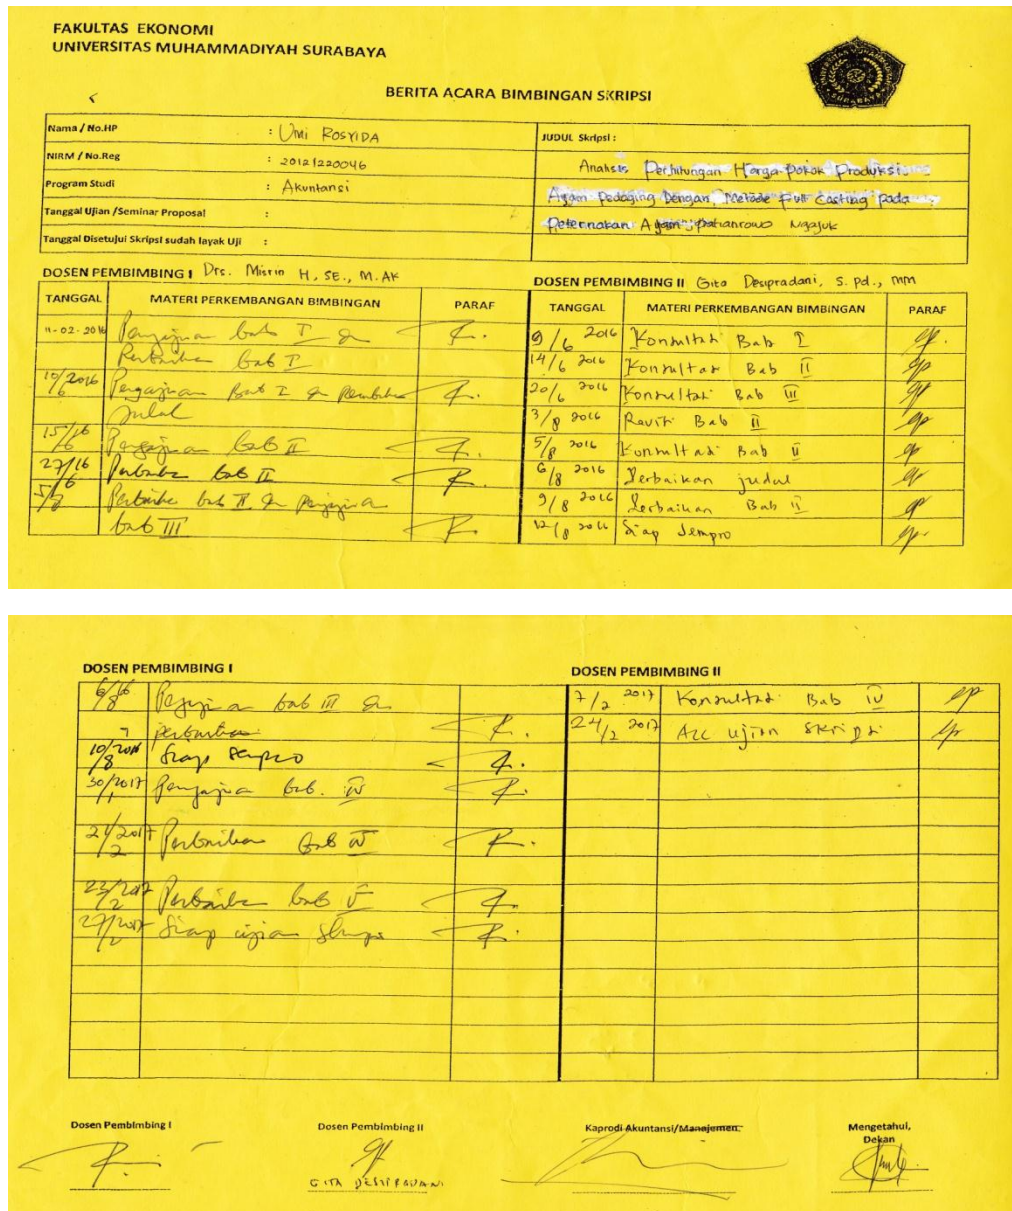 FAKULTAS EKONOMI
UNIVERSITAS MUHAMMADIYAH SURABAYA
BERITA ACARA BIMBINGAN SKRIPSI
Nama / No.HP : Umi ROSYIDA
NIRM / No.Reg : 20121220046
Program Studi : Akuntansi
Tanggal Ujian /Seminar Proposal :
Tanggal Disetujui Skripsi sudah layak Uji :
JUDUL Skripsi :
Analisis Perhitungan Harga Pokok Produksi
Ayam Pedaging Dengan Metode Full Costing Pada
Peternakan Ayam Patianrowo Nganjuk
DOSEN PEMBIMBING I Drs. Misrin H, SE., M.AK
TANGGAL MATERI PERKEMBANGAN BIMBINGAN PARAF
11-02-2016 Pengajuan bab I &
Perbaikan bab I
10/6 2016 Pengajuan Bab I &
Judul
15/6 16 Pengajuan bab II
27/6 16 Perbaikan bab II
5/8 Perbaikan bab II & pengajuan
bab III
DOSEN PEMBIMBING II Gita Desipradani, S. Pd., MM
TANGGAL MATERI PERKEMBANGAN BIMBINGAN PARAF
9/6 2016 Konsultasi Bab I
14/6 2016 Konsultasi Bab II
20/6 2016 Konsultasi Bab III
3/8 2016 Revisi Bab II
5/8 2016 Konsultasi Bab II
6/8 2016 Perbaikan judul
9/8 2016 Perbaikan Bab II
12/8 2016 Siap Sempro
DOSEN PEMBIMBING I
6/8 16 Pengajuan bab III &
perbaikan
10/8 2016 Siap Sempro
30/1 2017 Pengajuan bab. IV
21/2 2017 Perbaikan bab IV
23/2 2017 Perbaikan bab V
27/2 2017 Siap ujian Skripsi
DOSEN PEMBIMBING II
7/2 2017 Konsultasi Bab IV
24/2 2017 Acc ujian skripsi
Dosen Pembimbing I
Dosen Pembimbing II
Kaprodi Akuntansi/Manajemen
Mengetahui,
Dekan
GITA DESIPRADANI